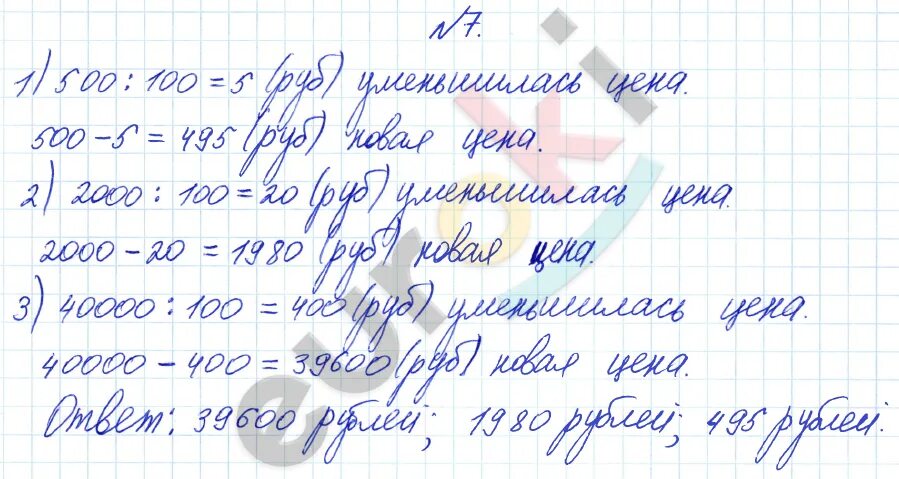 №7.
1) 500 : 100 = 5 (руб) уменьшилась цена.
500 - 5 = 495 (руб) новая цена.
2) 2000 : 100 = 20 (руб) уменьшилась цена.
2000 - 20 = 1980 (руб) новая цена.
3) 40000 : 100 = 400 (руб) уменьшилась цена.
40000 - 400 = 39600 (руб) новая цена.
Ответ: 39600 рублей; 1980 рублей; 495 рублей.
euroki